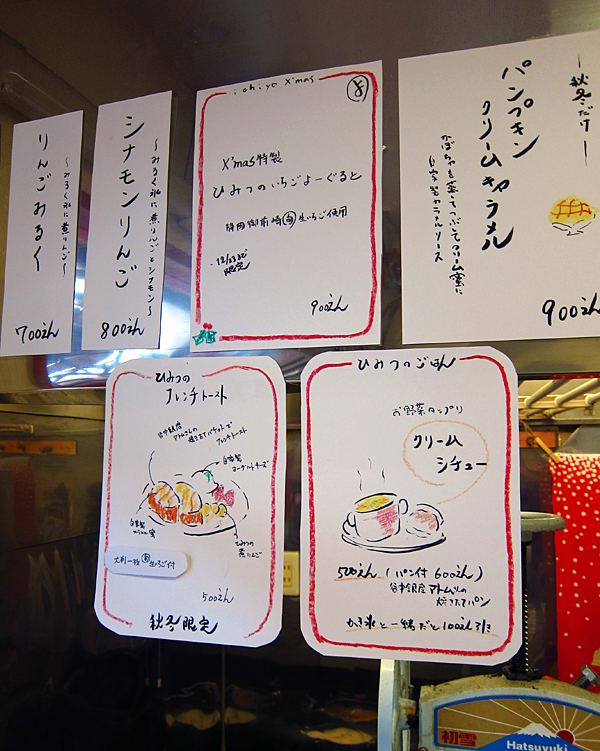 りんごみるく
〜みるく氷に煮りんご〜
700えん
シナモンりんご
〜みるく氷に煮りんごとシナモン〜
800えん
ichiyo X'mas
X'mas特製
ひみつのいちごよーぐると
静岡御前崎 旬 生いちご使用
12/23まで
限定
900えん
ー秋冬だけー
パンプキン
クリームキャラメル
かぼちゃを蒸してつぶしてクリーム蜜に
自家製キャラメルソース
900え
ひみつの
フレンチトースト
谷中銀座
アトムさんの
焼き立てバゲットで
フレンチトースト
自家製
ヨーグルトチーズ
自家製
ひみつの
煮りんご
生いちご付
500えん
秋冬限定
ひみつのごはん
お野菜タップリ
クリーム
シチュー
500えん (パン付 600えん)
谷中銀座アトムの
焼きたてパン
かき氷と一緒だと100えん引き
初雪
Hatsuyuki